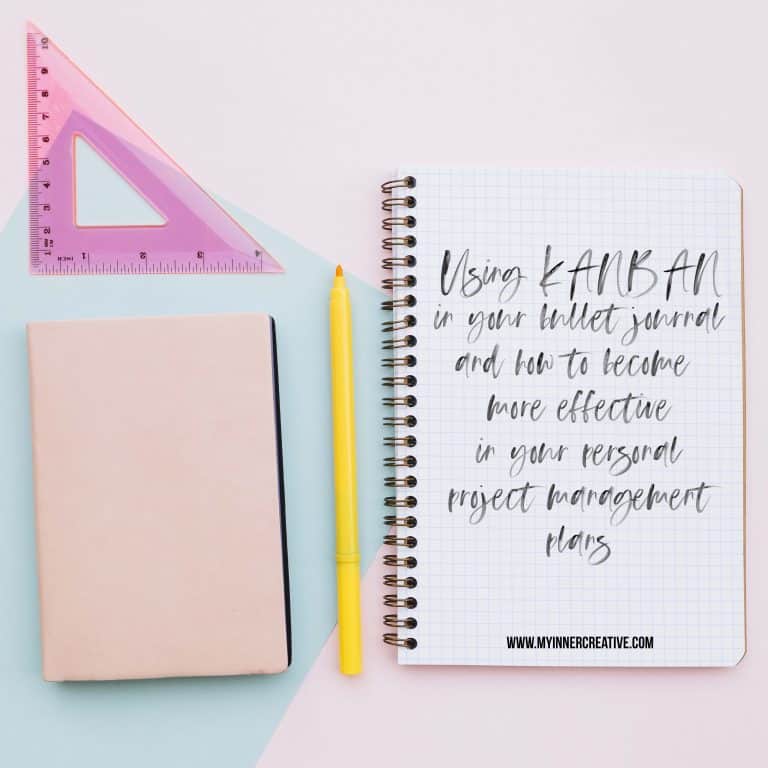 Using KANBAN
in your bullet journal
and how to become
more effective
in your personal
project management
plans
WWW.MYINNERCREATIVE.COM
10
9
8
7
6
5
4
3
2
1
INCH 1 2 3 4